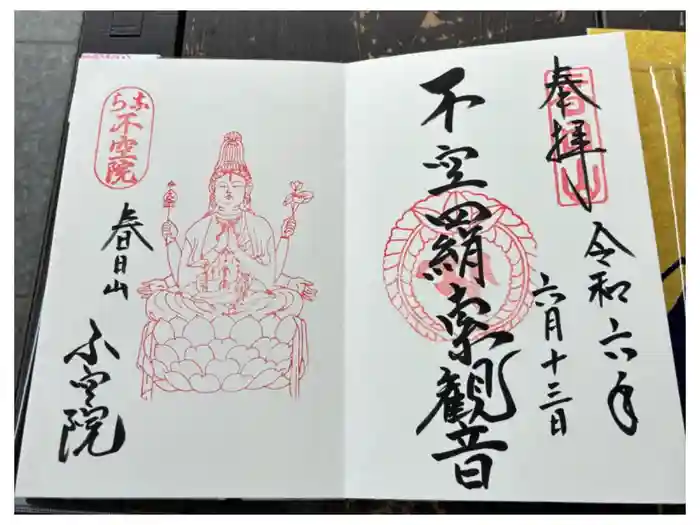 奉拝
春日山
令和六年
六月十三日
不空羂索観音
なら
不空院
春日山
不空院